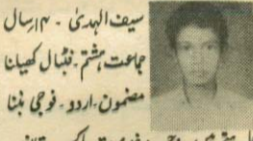 سیف الہدیٰ ۔ ۱۴ سال
جماعت ہشتم ۔ فٹبال کھیلنا
مضمون ۔ اردو ۔ فوجی بننا